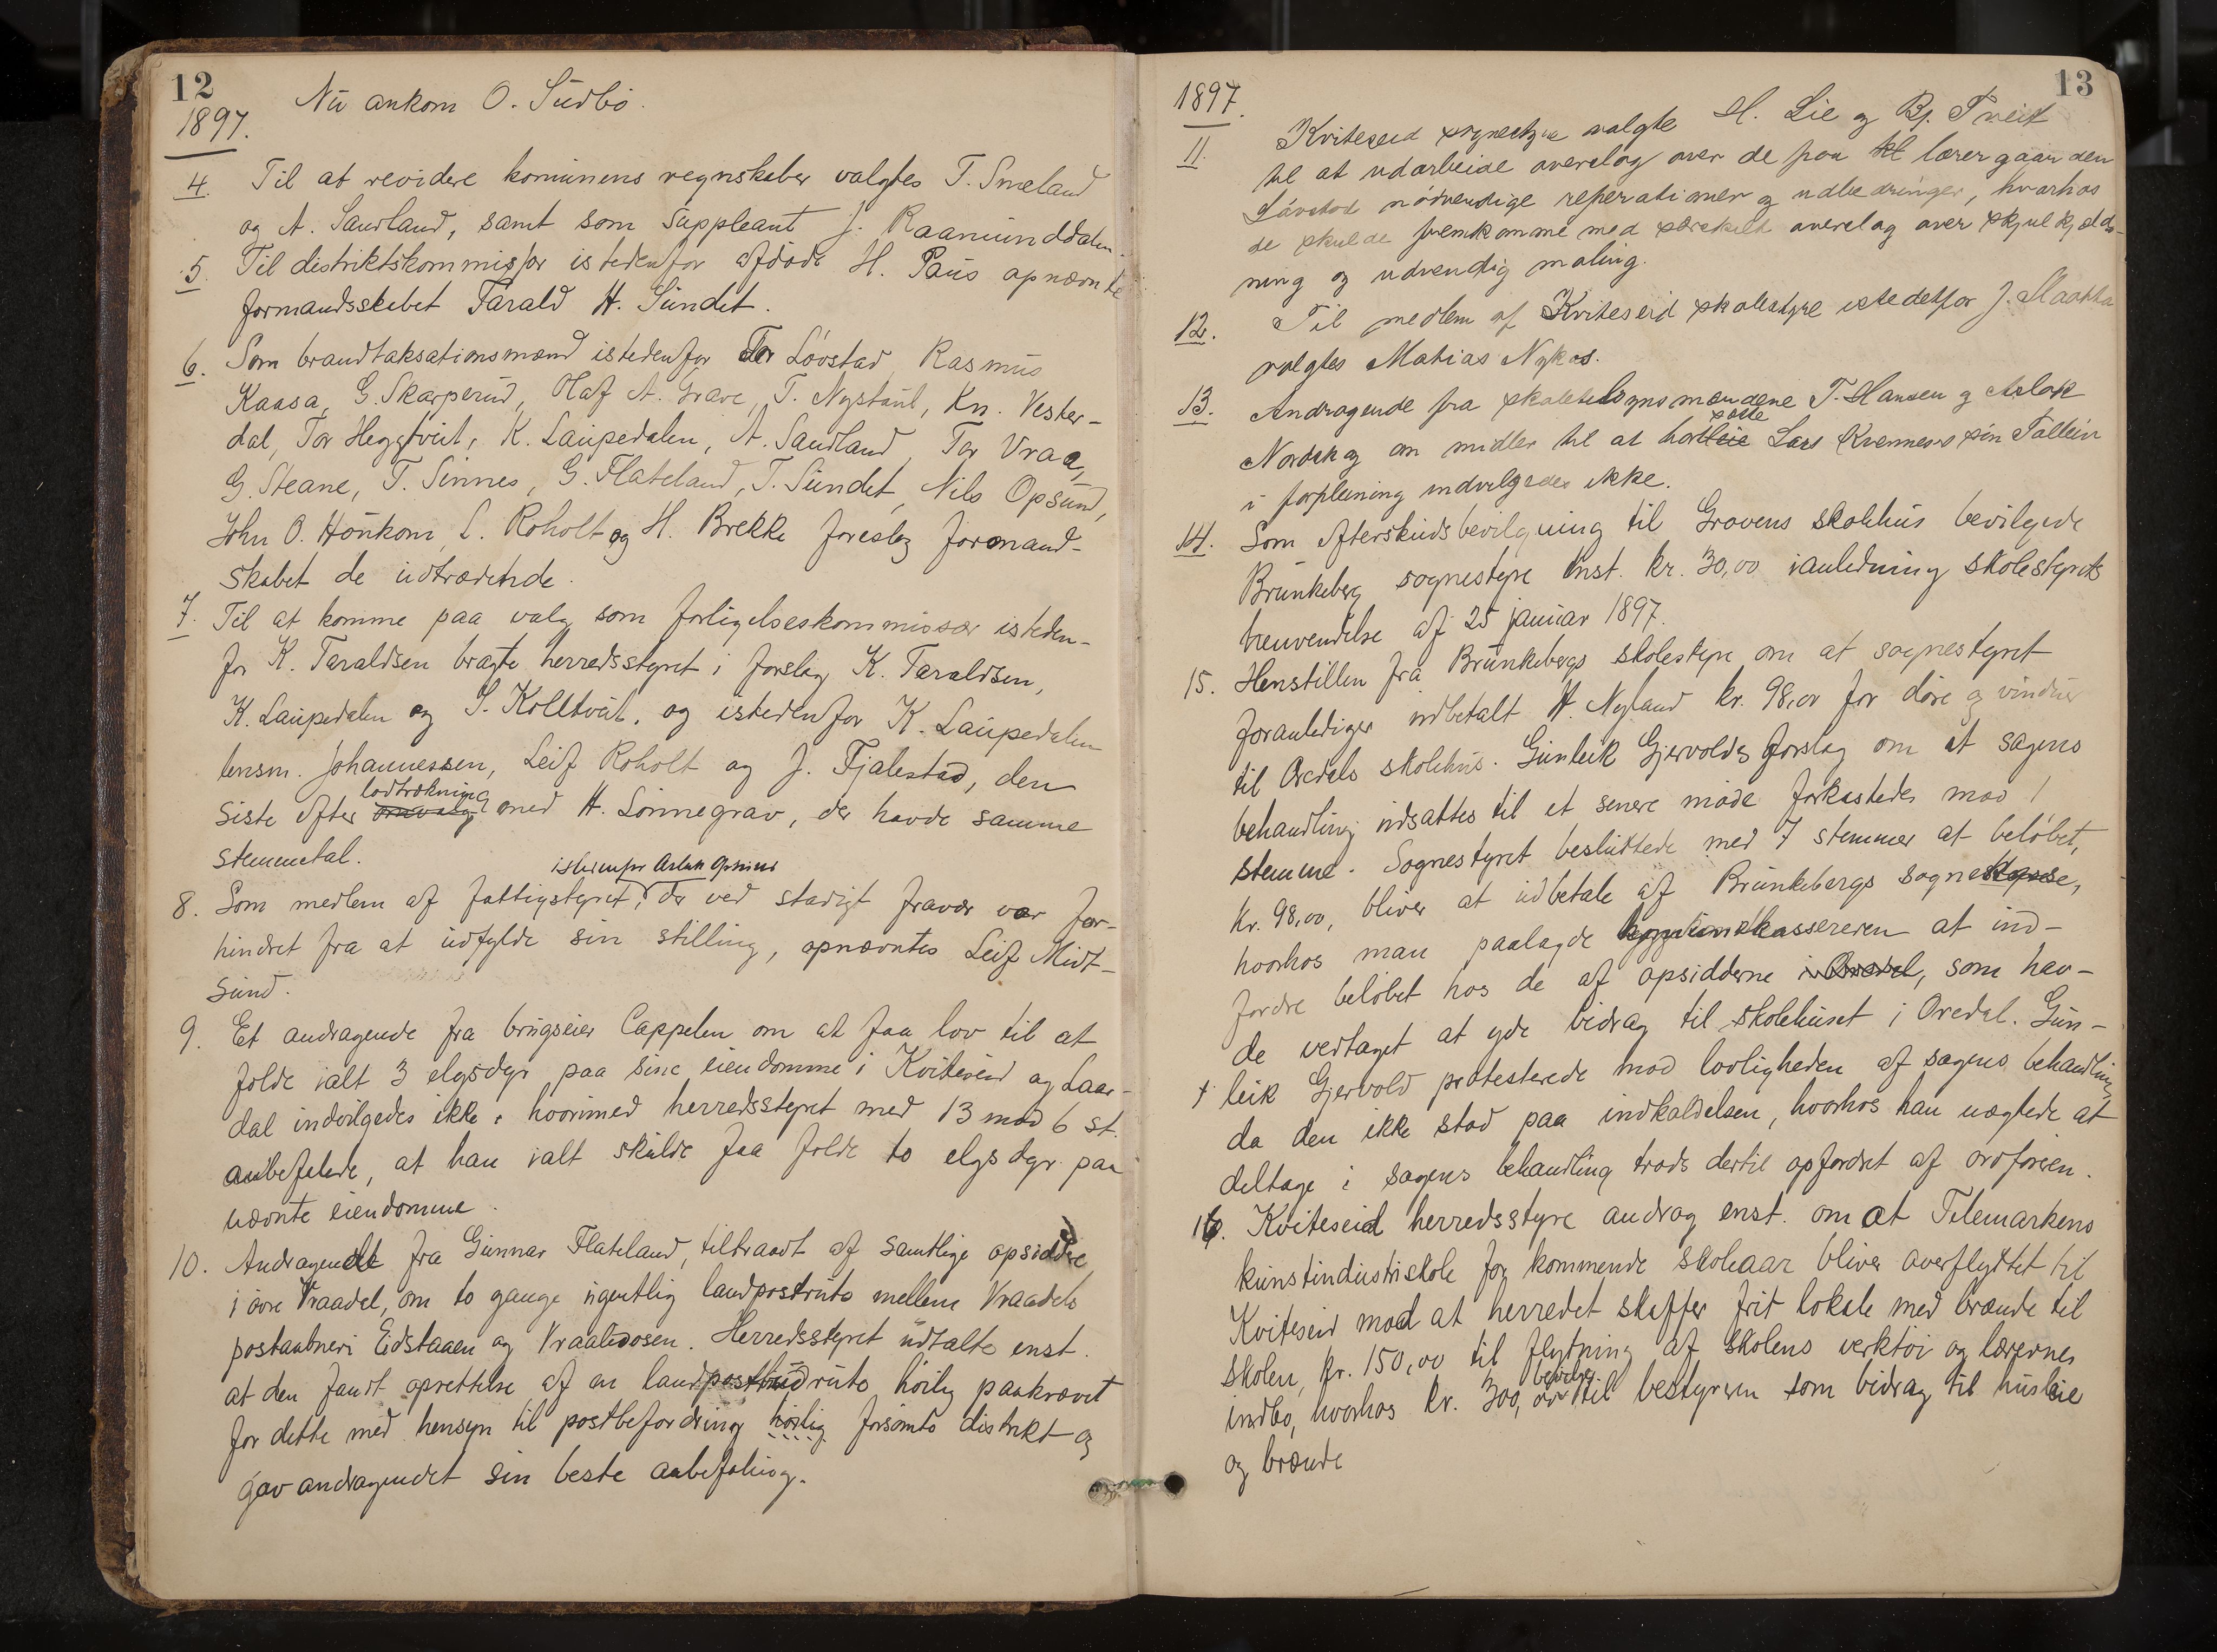 12
Nu ankom O. Sudbö.
1897.
4. Til at revidere komunens regnskaber valgtes T. Smeland
og A. Sandland, samt som suppleant J. Raamunddalen.
5. Til distriktskommissær istedenfor afdøde H. Paus opnævnte
formandsskabet Tarald H. Sundet.
6. Som brandtaksationsmænd istedenfor Tor Lövstad, Rasmus
Kaasa, G. Skarperud, Olaf A. Grave, T. Nystaul, Kn. Vester-
dal, Tor Heggtveit, K. Laupedalen, A. Sandland, Tor Vraa,
G. Steane, T. Sinnes, G. Flateland, T. Sundet, Nils Opsund,
John O. Hönkom, L. Roholt og H. Brekke foreslog formand-
skabet de udtrædende.
7. Til at komme paa valg som forligelseskommissær isteden-
for K. Taraldsen bragte herredsstyret i forslag K. Taraldsen,
K. Laupedalen og S. Kolltveit, og istedenfor K. Laupedalen
lensm. Johannessen, Leif Roholt og J. Fjalestad, den
lodtrækning
siste efter omvalg med H. Lönnegrav, der havde samme
stemmetal.
istedenfor Aslak Opsund
8. Som medlem af fattigstyret, der ved stadigt fravær var for-
hindret fra at udfylde sin stilling, opnævntes Leif Midt-
sund.
9. Et andragende fra brugseier Cappelen om at faa lov til at
fælde ialt 3 elgsdyr paa sine eiendomme i Kviteseid og Laar-
dal indvilgedes ikke, hvorimod herredsstyret med 13 mod 6 st.
anbefalede, at han ialt skulde faa fælde to elgsdyr paa
nævnte eiendomme.
10. Andragende fra Gunnar Flateland, tiltraadt af samtlige opsiddere
i övre Vraadal, om to gange ugentlig landpostrute mellem Vraadals
postaabneri Eidstaaen og Vraaliosen. Herredsstyret udtalte enst.
at den fandt oprettelse af en landpostbudrute höilig paakrævet
for dette med hensyn til postbefordring höilig forsömte distrikt og
gav andragendet sin beste anbefaling.
13
1897.
11. Kviteseid sognestyre valgte H. Lie og Bj. Tveit
til at udarbeide overslag over de paa lærergaarden
Lövstad nödvendige reperationer og udbedringer, hvorhos
de skulde fremkomme med særskilt overslag over skjulkjæld-
ning og udvendig maling.
12. Til medlem af Kviteseid skolestyre istedetfor J. Slaatta
valgtes Matias Nykos.
13. Andragende fra skoletilsynsmændene T. Hansen og Aslak
sætte
Nordskog om midler til at bortleie Lars Kvennes's sön Tallein
i forpleining indvilgedes ikke.
14. Som efterskudsbevilgning til Grovens skolehus bevilgede
Brunkeberg sognestyre enst. kr. 30,00 ianledning skolestyrets
henvendelse af 25 januar 1897.
15. Henstillen fra Brunkebergs skolestyre om at sognestyret
foranlediger udbetalt H. Nyland kr. 98,00 for döre og vinduer
til Oredals skolehus. Gunleik Gjervolds forslag om at sagens
behandling udsattes til et senere möde forkastedes mod 1
stemme. Sognestyret besluttede med 7 stemmer at belöbet,
kr. 98,00, bliver at udbetale af Brunkebergs sognekasse,
hvorhos man paalagde kassereren at ind-
fordre belöbet hos de af opsidderne i Oredal, som hav-
de vedtaget at yde bidrag til skolehuset i Oredal. Gun-
leik Gjervold protesterede mod lovligheden af sagens behandling,
da den ikke stod paa indkaldelsen, hvorhos han nægtede at
deltage i sagens behandling trods dertil opfordret af ordföreren.
16. Kviteseid herredsstyre androg enst. om at Telemarkens
kunstindustriskole for kommende skoleaar bliver overflyttet til
Kviteseid mod at herredet skaffer frit lokale med brænde til
skolen, kr. 150,00 til flytning af skolens verktöi og lærernes
bevilges
indbo, hvorhos kr. 300,00 til bestyreren som bidrag til husleie
og brænde